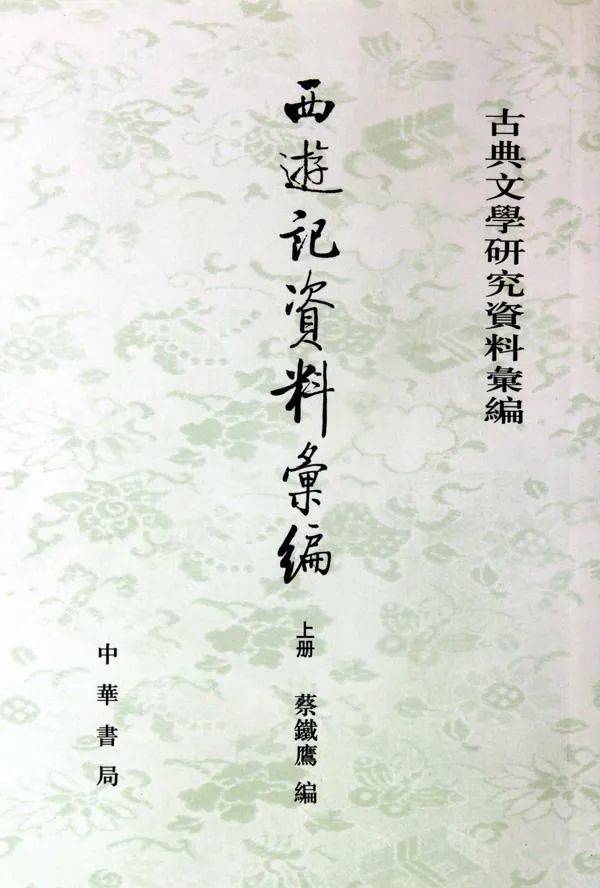 古典文學研究資料彙編
西遊記資料彙編
上册
蔡鐵鷹 編
中華書局